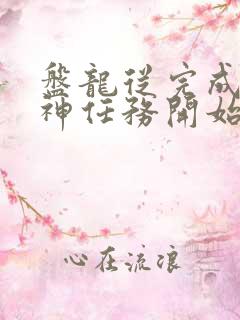 盤龍從完成
神任務開始
心在流浪